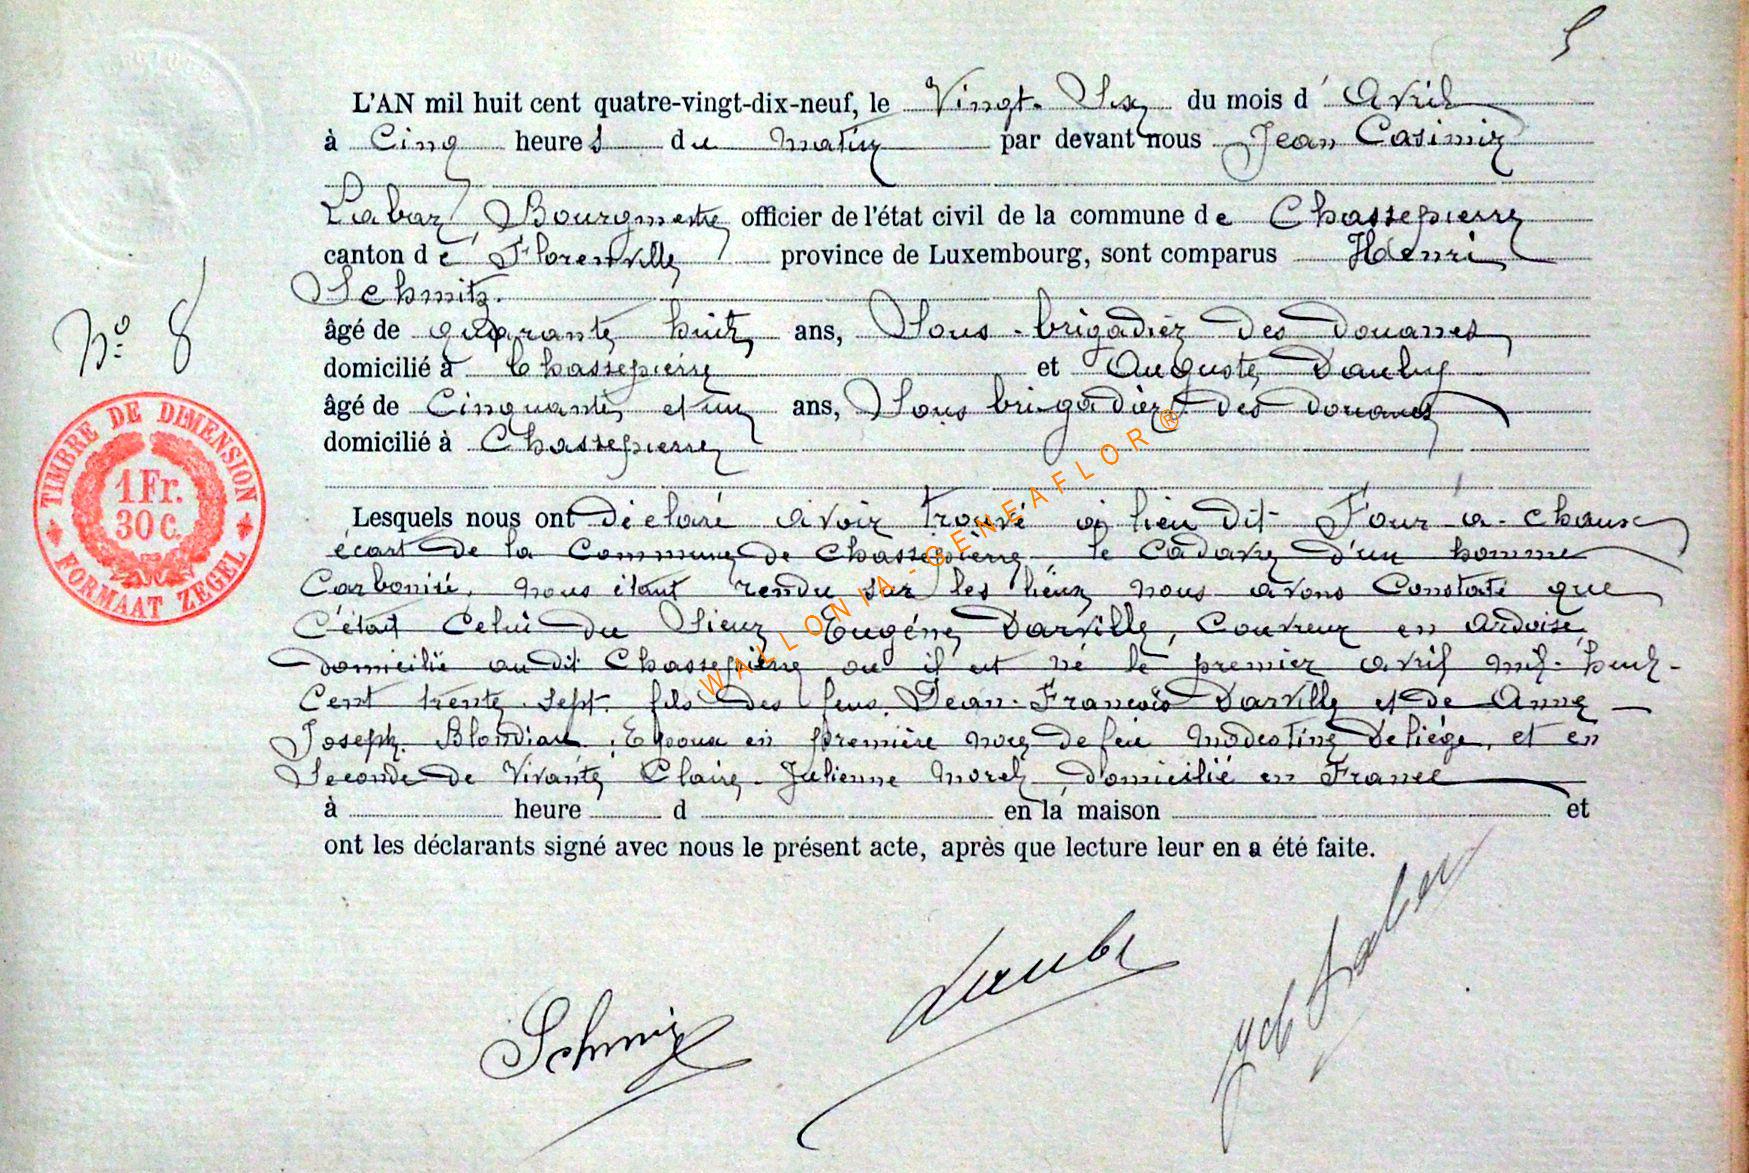 5
L'AN mil huit cent quatre-vingt-dix-neuf, le Vingt-Six du mois d' Avril
à Cinq heures du matin par devant nous Jean Casimir
Labar, Bourgmestre officier de l'état civil de la commune de Chassepierre
canton de Florenville province de Luxembourg, sont comparus Henri
Schmitz.
N° 8
âgé de quarante huit ans, Sous-brigadier des douanes
domicilié à Chassepierre et Auguste Dauby
âgé de Cinquante et un ans, Sous brigadier des douanes
domicilié à Chassepierre
TIMBRE DE DIMENSION
1 Fr.
30 C.
FORMAAT ZEGEL
Lesquels nous ont déclaré avoir trouvé au lieu dit Four-à-chaux
écart de la Commune de Chassepierre le Cadavre d'un homme
Carbonisé. nous étant rendu sur les lieux nous avons Constaté que
C'était Celui du Sieur Eugène Darville, Couvreur en ardoise,
domicilié au dit Chassepierre où il est né le premier avril mil-huit-
Cent trente-sept. fils des feus Jean-François Darville et de Anne
Joseph Blondiau. Epoux en première noce de feu Modestine Deliége, et en
Seconde de Vivante Claire-Julienne Morel domicilié en France
à heure d en la maison et
ont les déclarants signé avec nous le présent acte, après que lecture leur en a été faite.
WALLONIA-GENEAFLOR®
Schmitz
Dauby
Labar